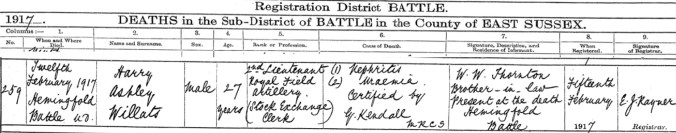 Registration District BATTLE.
1917. DEATHS in the Sub-District of BATTLE in the County of EAST SUSSEX.
Columns :— 1. 2. 3. 4. 5. 6. 7. 8. 9.
No. When and Where Died. Name and Surname. Sex. Age. Rank or Profession. Cause of Death. Signature, Description, and Residence of Informant. When Registered. Signature of Registrar.
259
Twelfth
February 1917
Hemingfold
Battle U.D.
Harry
Ashley
Willats
male
27
years
2nd Lieutenant
Royal Field
Artillery.
(Stock Exchange
Clerk)
(1) Nephritis
(2) Uraemia
Certified by
G. Kendall
MRCS
W. W. Thornton
Brother-in-law
Present at the death
Hemingfold
Battle
Fifteenth
February
1917
E. J. Rayner
Registrar.